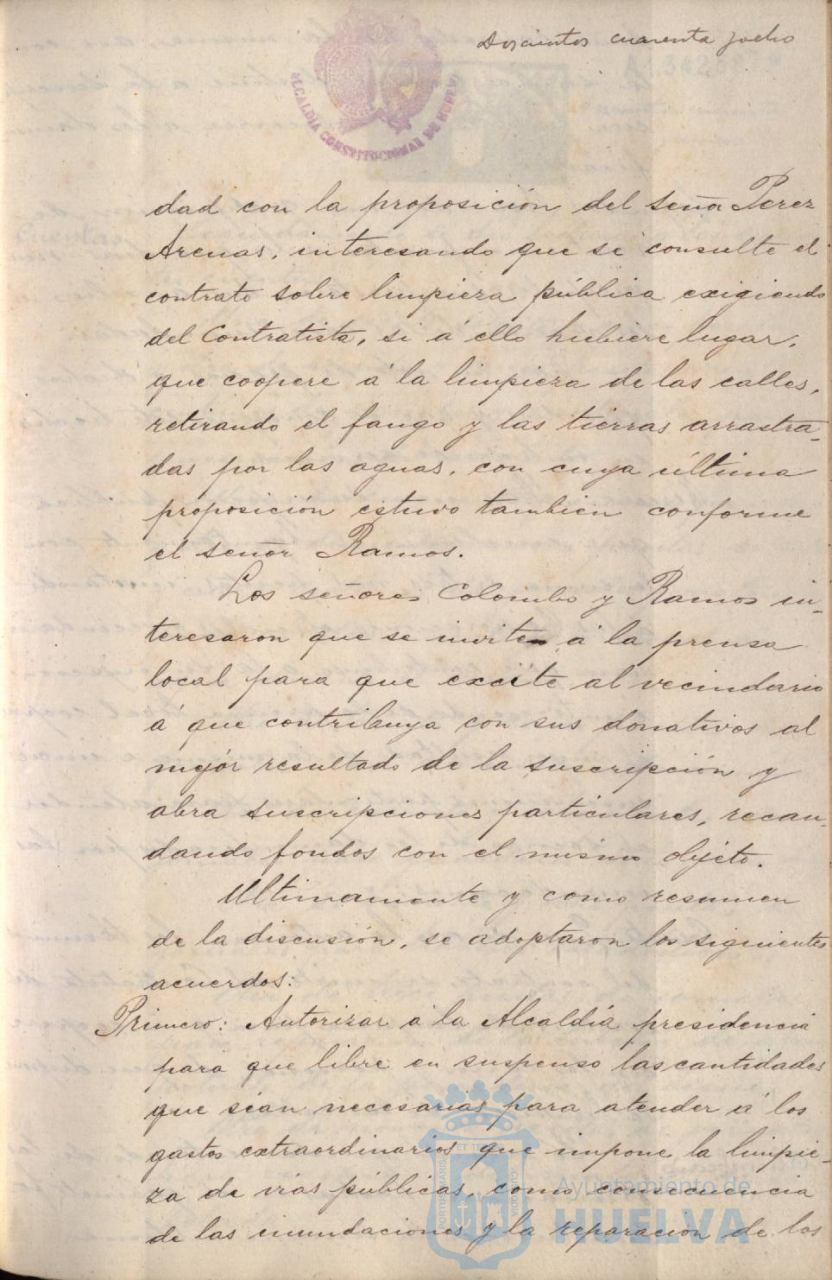 Doscientos cuarenta y ocho
ALCALDÍA CONSTITUCIONAL DE HUELVA
dad con la proposición del señor Perez
Arenas, interesando que se consulte el
contrato sobre limpieza pública exigiendo
del Contratista, si á ello hubiere lugar,
que coopere á la limpieza de las calles,
retirando el fango y las tierras arrastra-
das por las aguas, con cuya última
proposición estuvo tambien conforme
el señor Ramos.
Los señores Colombo y Ramos in-
teresaron que se invite á la prensa
local para que excite al vecindario
á que contribuya con sus donativos al
mejor resultado de la suscripción y
abra suscripciones particulares, recau-
dando fondos con el mismo objeto.
Ultimamente y como resumen
de la discusión, se adoptaron los siguientes
acuerdos:
Primero: Autorizar á la Alcaldía presidencia
para que libre en suspenso las cantidades
que sean necesarias para atender á los
gastos extraordinarios que impone la limpie-
za de vías públicas, como consecuencia
de las inundaciones y la reparación de los
Ayuntamiento de
HUELVA